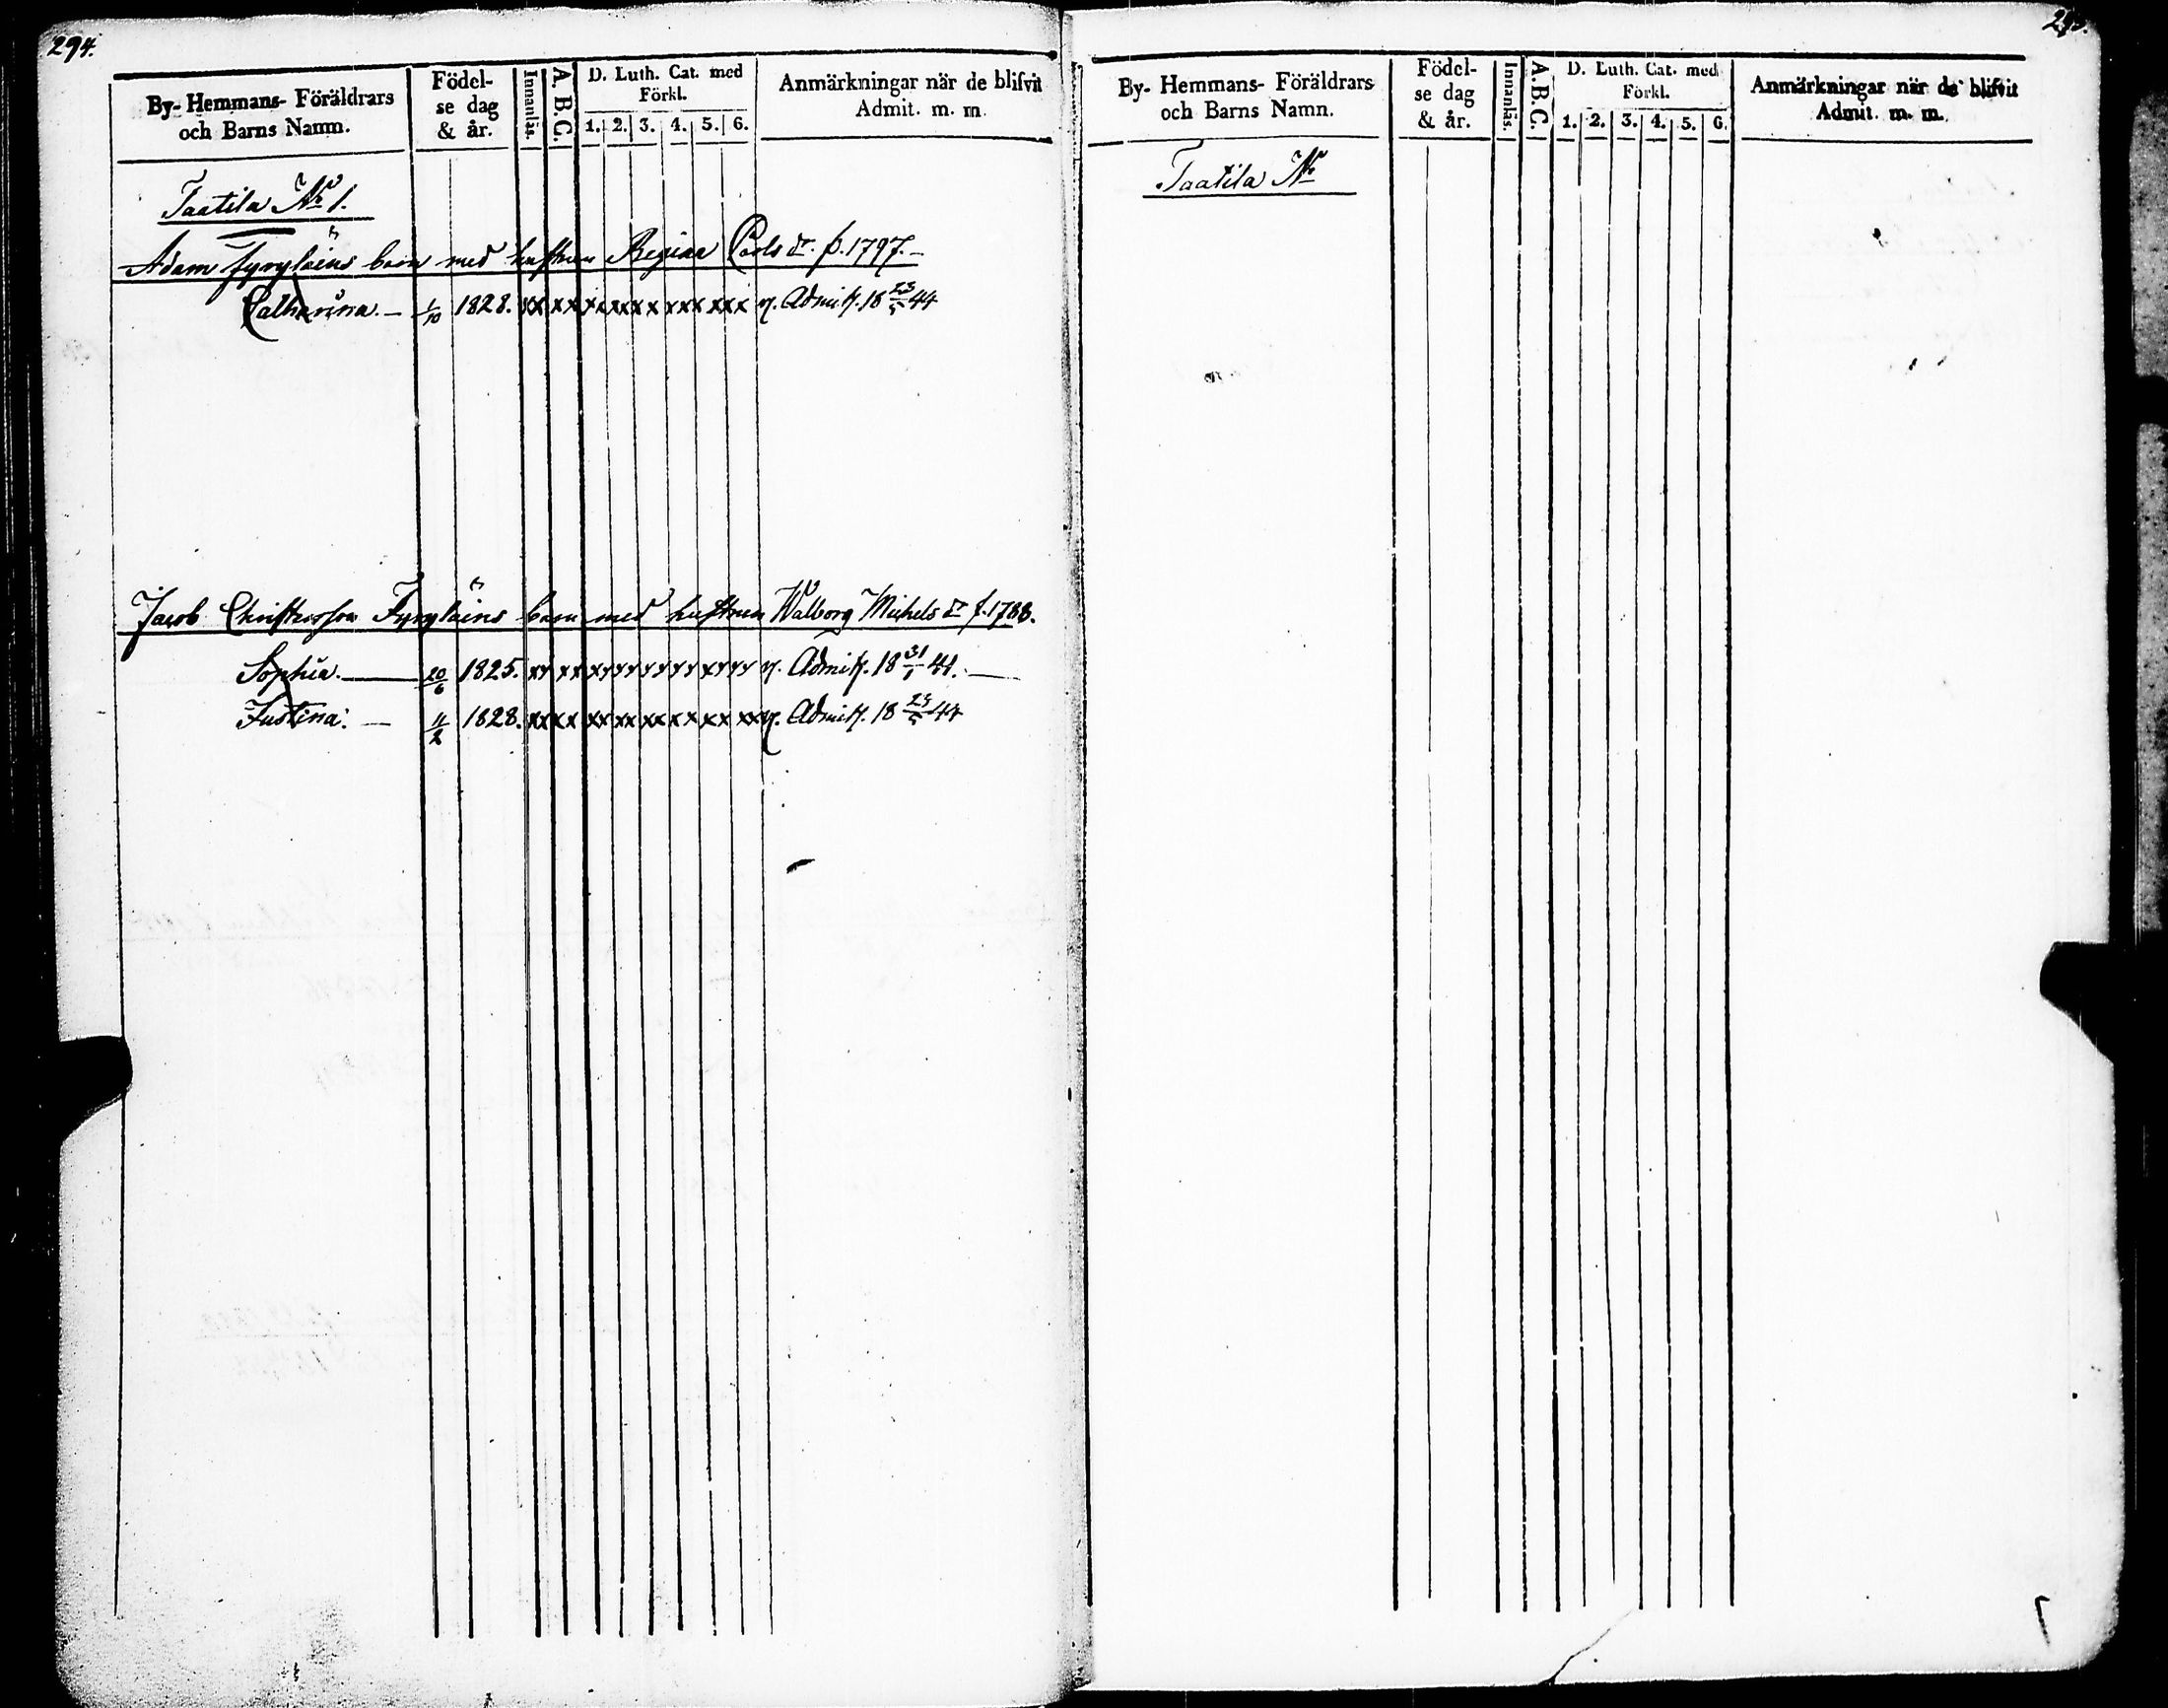 294.
By- Hemmans- Föräldrars
och Barns Namn.
Födel-
se dag
& år.
Innanläs.
A. B. C.
D. Luth. Cat. med
Förkl.
1. 2. 3. 4. 5. 6.
Anmärkningar när de blifvit
Admit. m. m.
Taatila No 1.
Adam barn med hustrun Regina Carls dr. f. 1797.
Catharina. 1/10 1828. xx xx xx xxxx xxx xxx Admitt. 18 23/5 44
Jacob Christersson barn med hustrun Walborg Michels dr f. 1788.
Sophia. 20/6 1825. Admitt. 18 31/ 41.
Justina. 11/2 1828. xx xx xx xx xx xx xx xx Admitt. 18 23/5 44
By- Hemmans- Föräldrars
och Barns Namn.
Födel-
se dag
& år.
Innanläs.
A. B. C.
D. Luth. Cat. med
Förkl.
1. 2. 3. 4. 5. 6.
Anmärkningar när de blifvit
Admit. m. m.
Taatila No